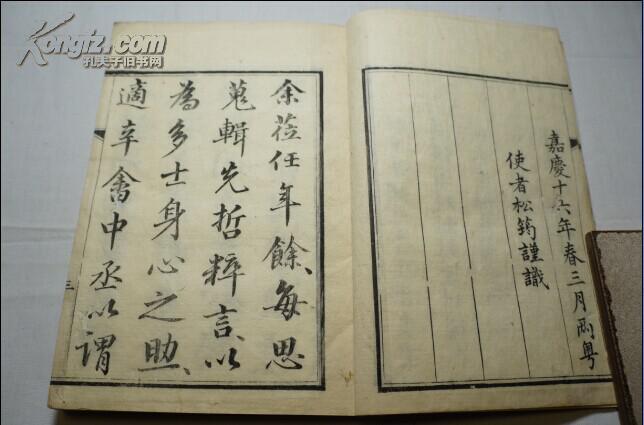 嘉慶十六年春三月兩粵
使者松筠謹識
余蒞任年餘每思
蒐輯先哲粹言以
為多士身心之助
適辛畬中丞以謂
三
Kongfz.com
孔夫子旧书网